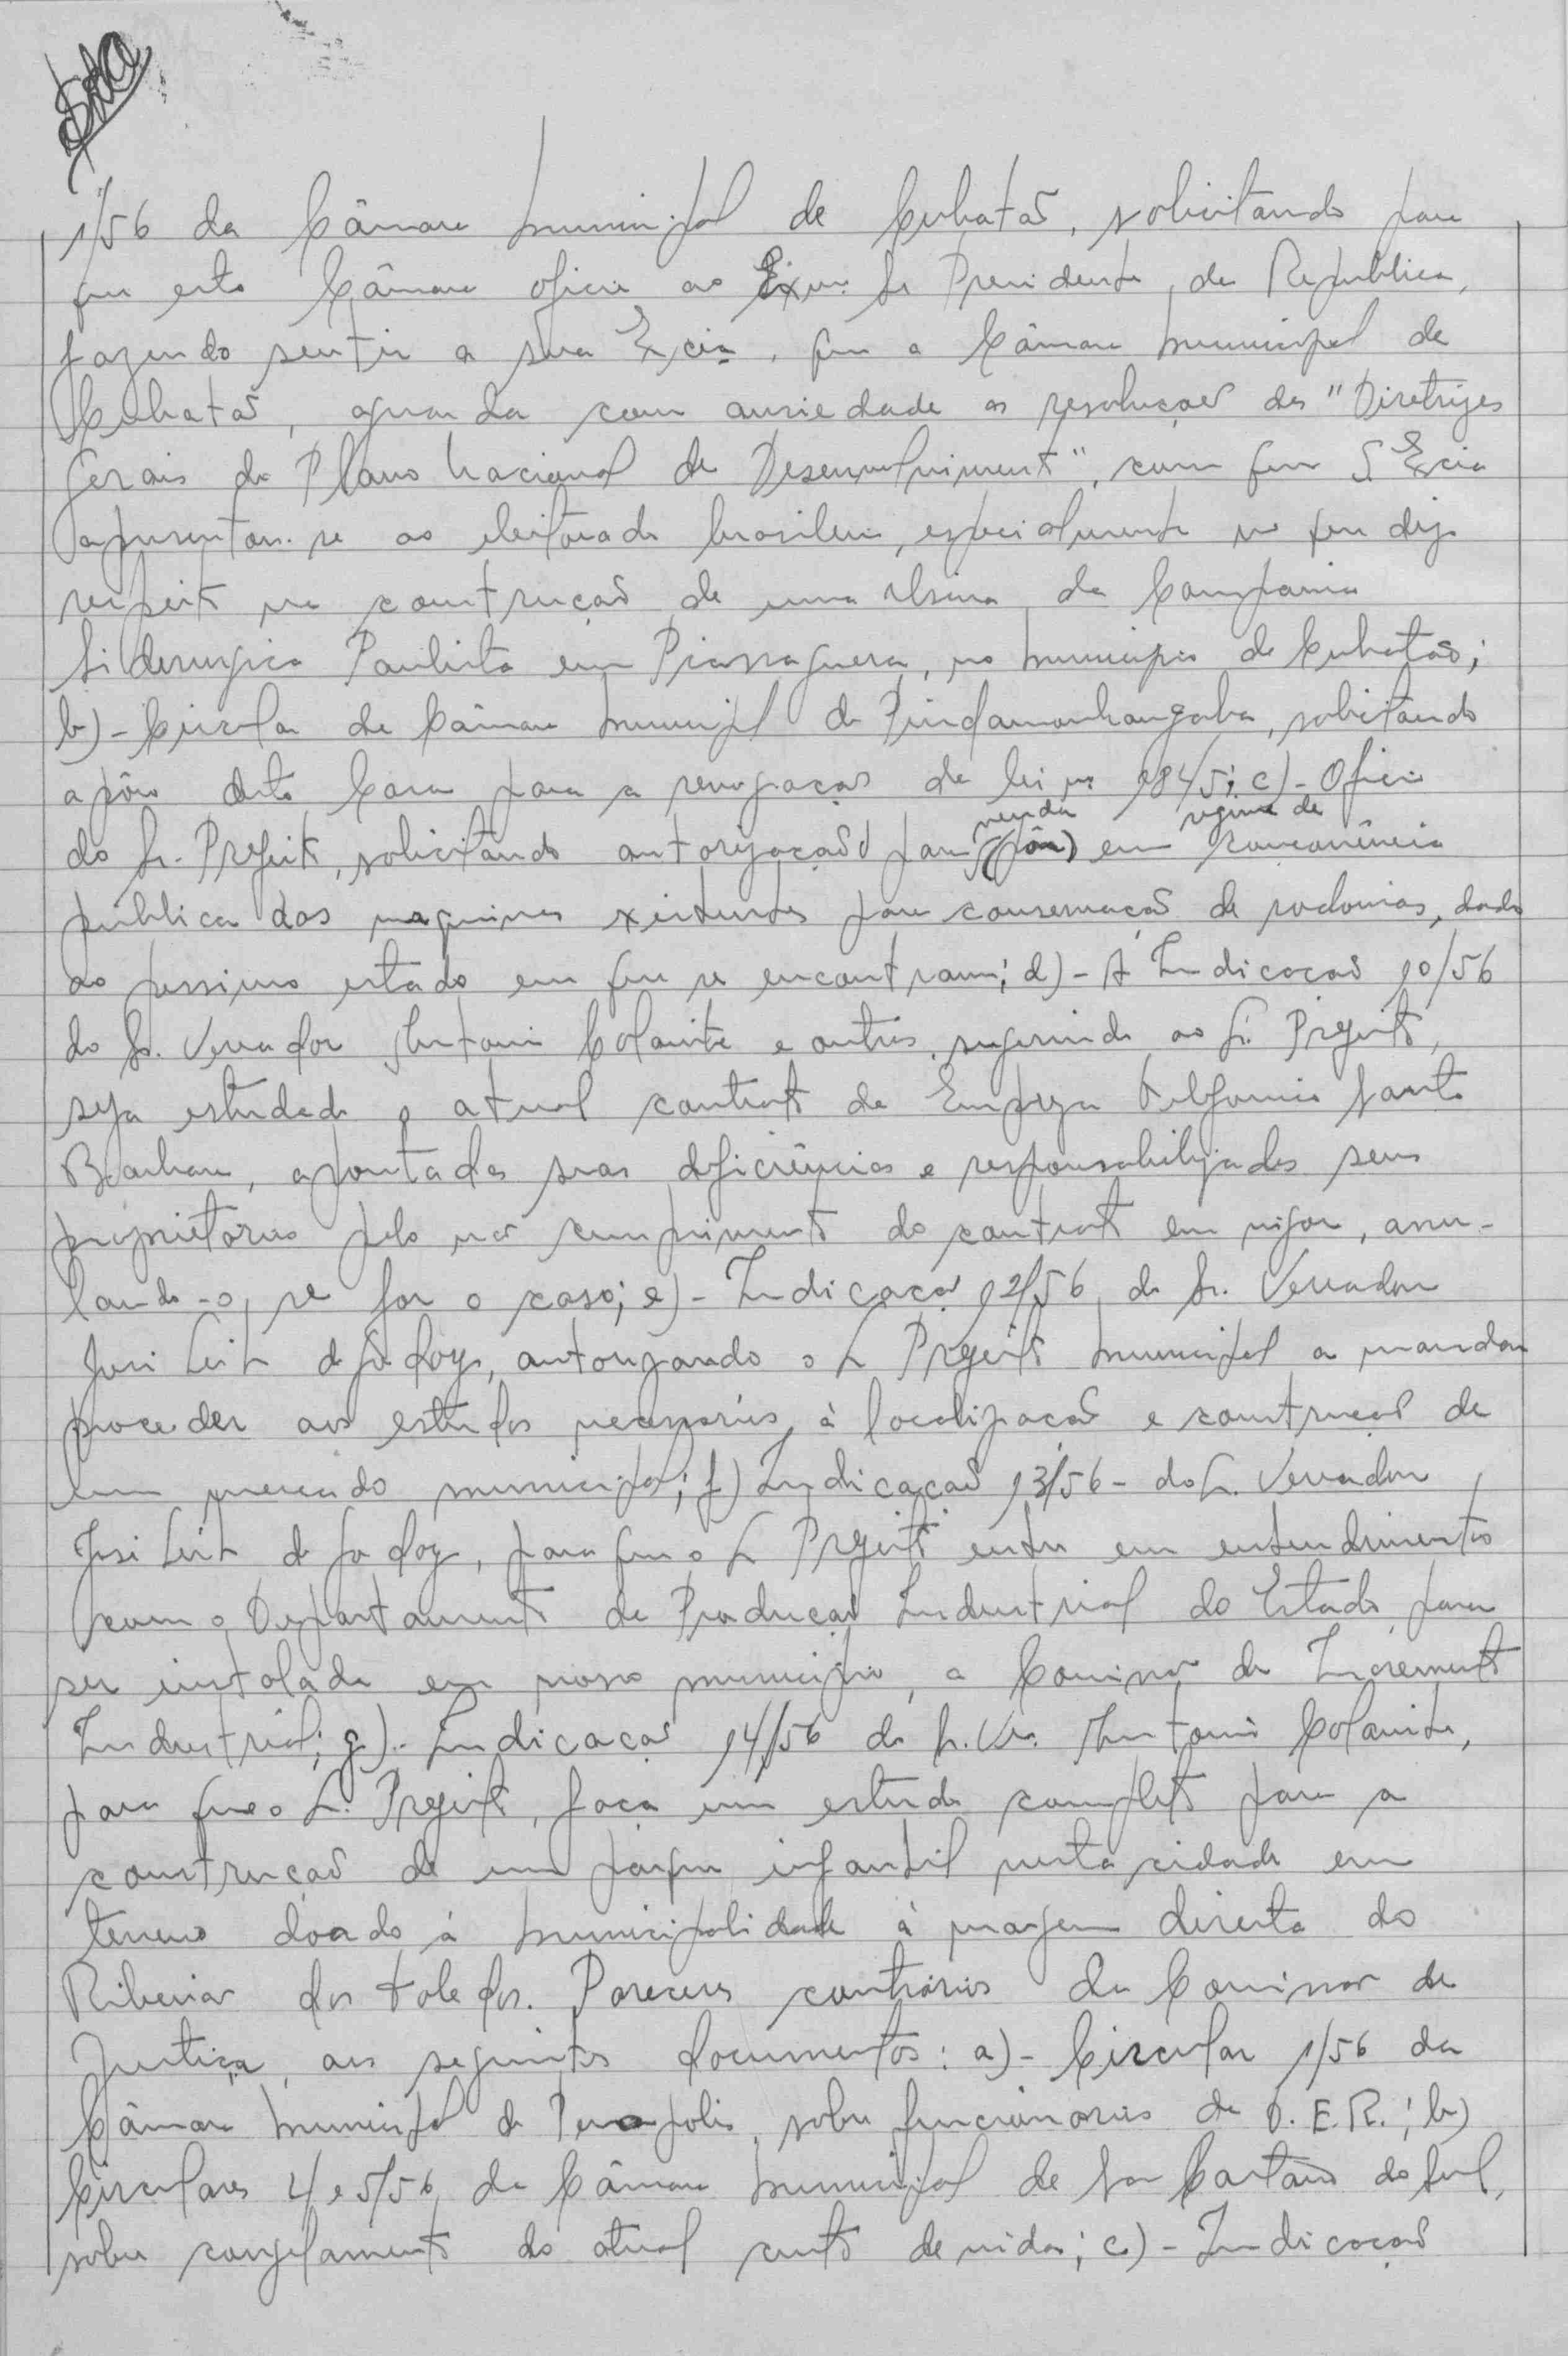 1/56 da Câmara Municipal de Cubatão, solicitando para
que esta Câmara oficie ao Exmo. Sr. Presidente da Republica,
fazendo sentir a Sua Excia, que a Câmara Municipal de
Cubatão, aguarda com ansiedade as resoluções das "Diretrizes
Gerais do Plano Nacional de Desenvolvimento", com que S. Excia
apresentou-se ao eleitorado brasileiro, especialmente no que diz
respeito na construção de uma Usina da Companhia
Siderurgica Paulista em Piassaguera, no município de Cubatão;
b)- Circular da Câmara Municipal de Pindamonhangaba, solicitando
apôio desta Casa para a revogação da lei nº 1845; c)- Oficio
do Sr. Prefeito, solicitando autorização para venda (pôr) em regime de concorrência
pública das maquinas existentes para conservação de rodovias, dado
ao pessimo estado em que se encontram; d)- A Indicação 10/56
do Sr. Vereador Antonio Colanite e outros, sugerindo ao Sr. Prefeito,
seja estudado o atual contrato da Empreza Telefonica Santa
Barbara, apontadas suas deficiências e responsabilizados seus
proprietarios pelo não cumprimento do contrato em vigor, anu-
lando-o, se for o caso; e)- Indicação 12/56, do Sr. Vereador
José Leite de Godoy, autorizando o Sr. Prefeito Municipal a mandar
proceder aos estudos necessários à localização e construção de
um mercado municipal; f) Indicação 13/56 - do Sr. Vereador
José Leite de Godoy, para que o Sr. Prefeito entre em entendimentos
com o Departamento de Produção Industrial do Estado, para
ser instalada em nosso município, a Comissão de Incremento
Industrial; g)- Indicação 14/56 do Sr. Ver. Antonio Colanite,
para que o Sr. Prefeito, faça um estudo completo para a
construção de um parque infantil nesta cidade em
terreno doado á Municipalidade á margem direita do
Ribeirão dos Toledos. Pareceres contrários da Comissão de
Justiça, aos seguintes documentos: a)- Circular 1/56 da
Câmara Municipal de Penapolis, sobre funcionários do D.E.R.; b)
Circulares 4 e 5/56 da Câmara Municipal de São Caetano do Sul,
sobre congelamento do atual custo de vida; c)- Indicação